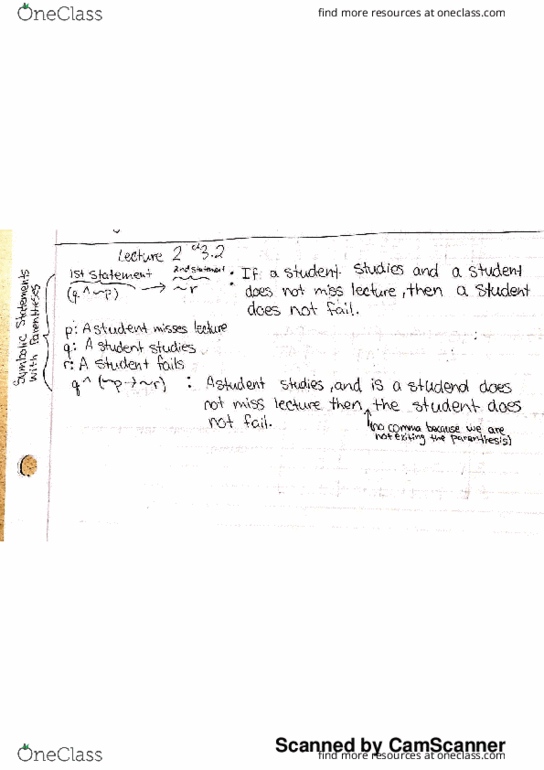 OneClass
find more resources at oneclass.com
Lecture 2 ch3.2
Symbolic Statements
with Parentheses
1st statement 2nd statement
(q ^ ~p) → ~r : If a student studies and a student
does not miss lecture, then a student
does not fail.
p: A student misses lecture
q: A student studies
r: A student fails
q ^ (~p → ~r) : A student studies, and is a studend does
not miss lecture then, the student does
not fail.
(no comma because we are
not exiting the parenthesis)
Scanned by CamScanner
OneClass
find more resources at oneclass.com